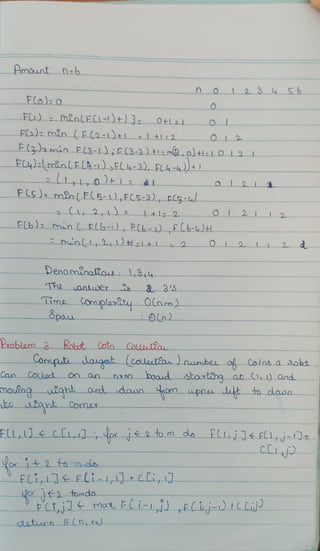 Amount n=6
n 0 1 2 3 4 5 6
F(0)=0 0
F(1) = min{F(1-1)+1}= 0+1=1 0 1
F(2)= min (F(2-1)+1 = 1+1=2 0 1 2
F(3)=min F(3-1), F(3-3)+1=m(2,0)+1=1 0 1 2 1
F(4)=(min(F(4-1),F(4-3), F(4-4))+1
= (1,1,0)+1 = 1 0 1 2 1 1
F(5)= min(F(5-1),F(5-3), F(5-4)
= (1, 2, 1) = 1+1=2 0 1 2 1 1 2
F(6)= min( F(6-1), F(6-3), F(6-4)+1
= min(1, 2, 1)+1=1+1 = 2 0 1 2 1 1 2 2
Denomination : 1,3,4
The answer is 2 3's
Time Complexity : O(nm)
Space : Θ(n)
Problem 3 Robot Coin Collection
Compute largest (collection) number of coins a robot
can collect on an n×m board starting at (1,1) and
moving right and down from upper left to down
its right corner
F[1,1] ← C[1,1] ; for j ← 2 to m do F[1,j] ← F[1,j-1]+
C[1,j)
for i ← 2 to n do
F[i,1] ← F[i-1,1] + C[i,1]
for j ← 2 to m do
F[i,j] ← max F(i-1,j) , F(i,j-1) + C[i,j]
return F(n,m)